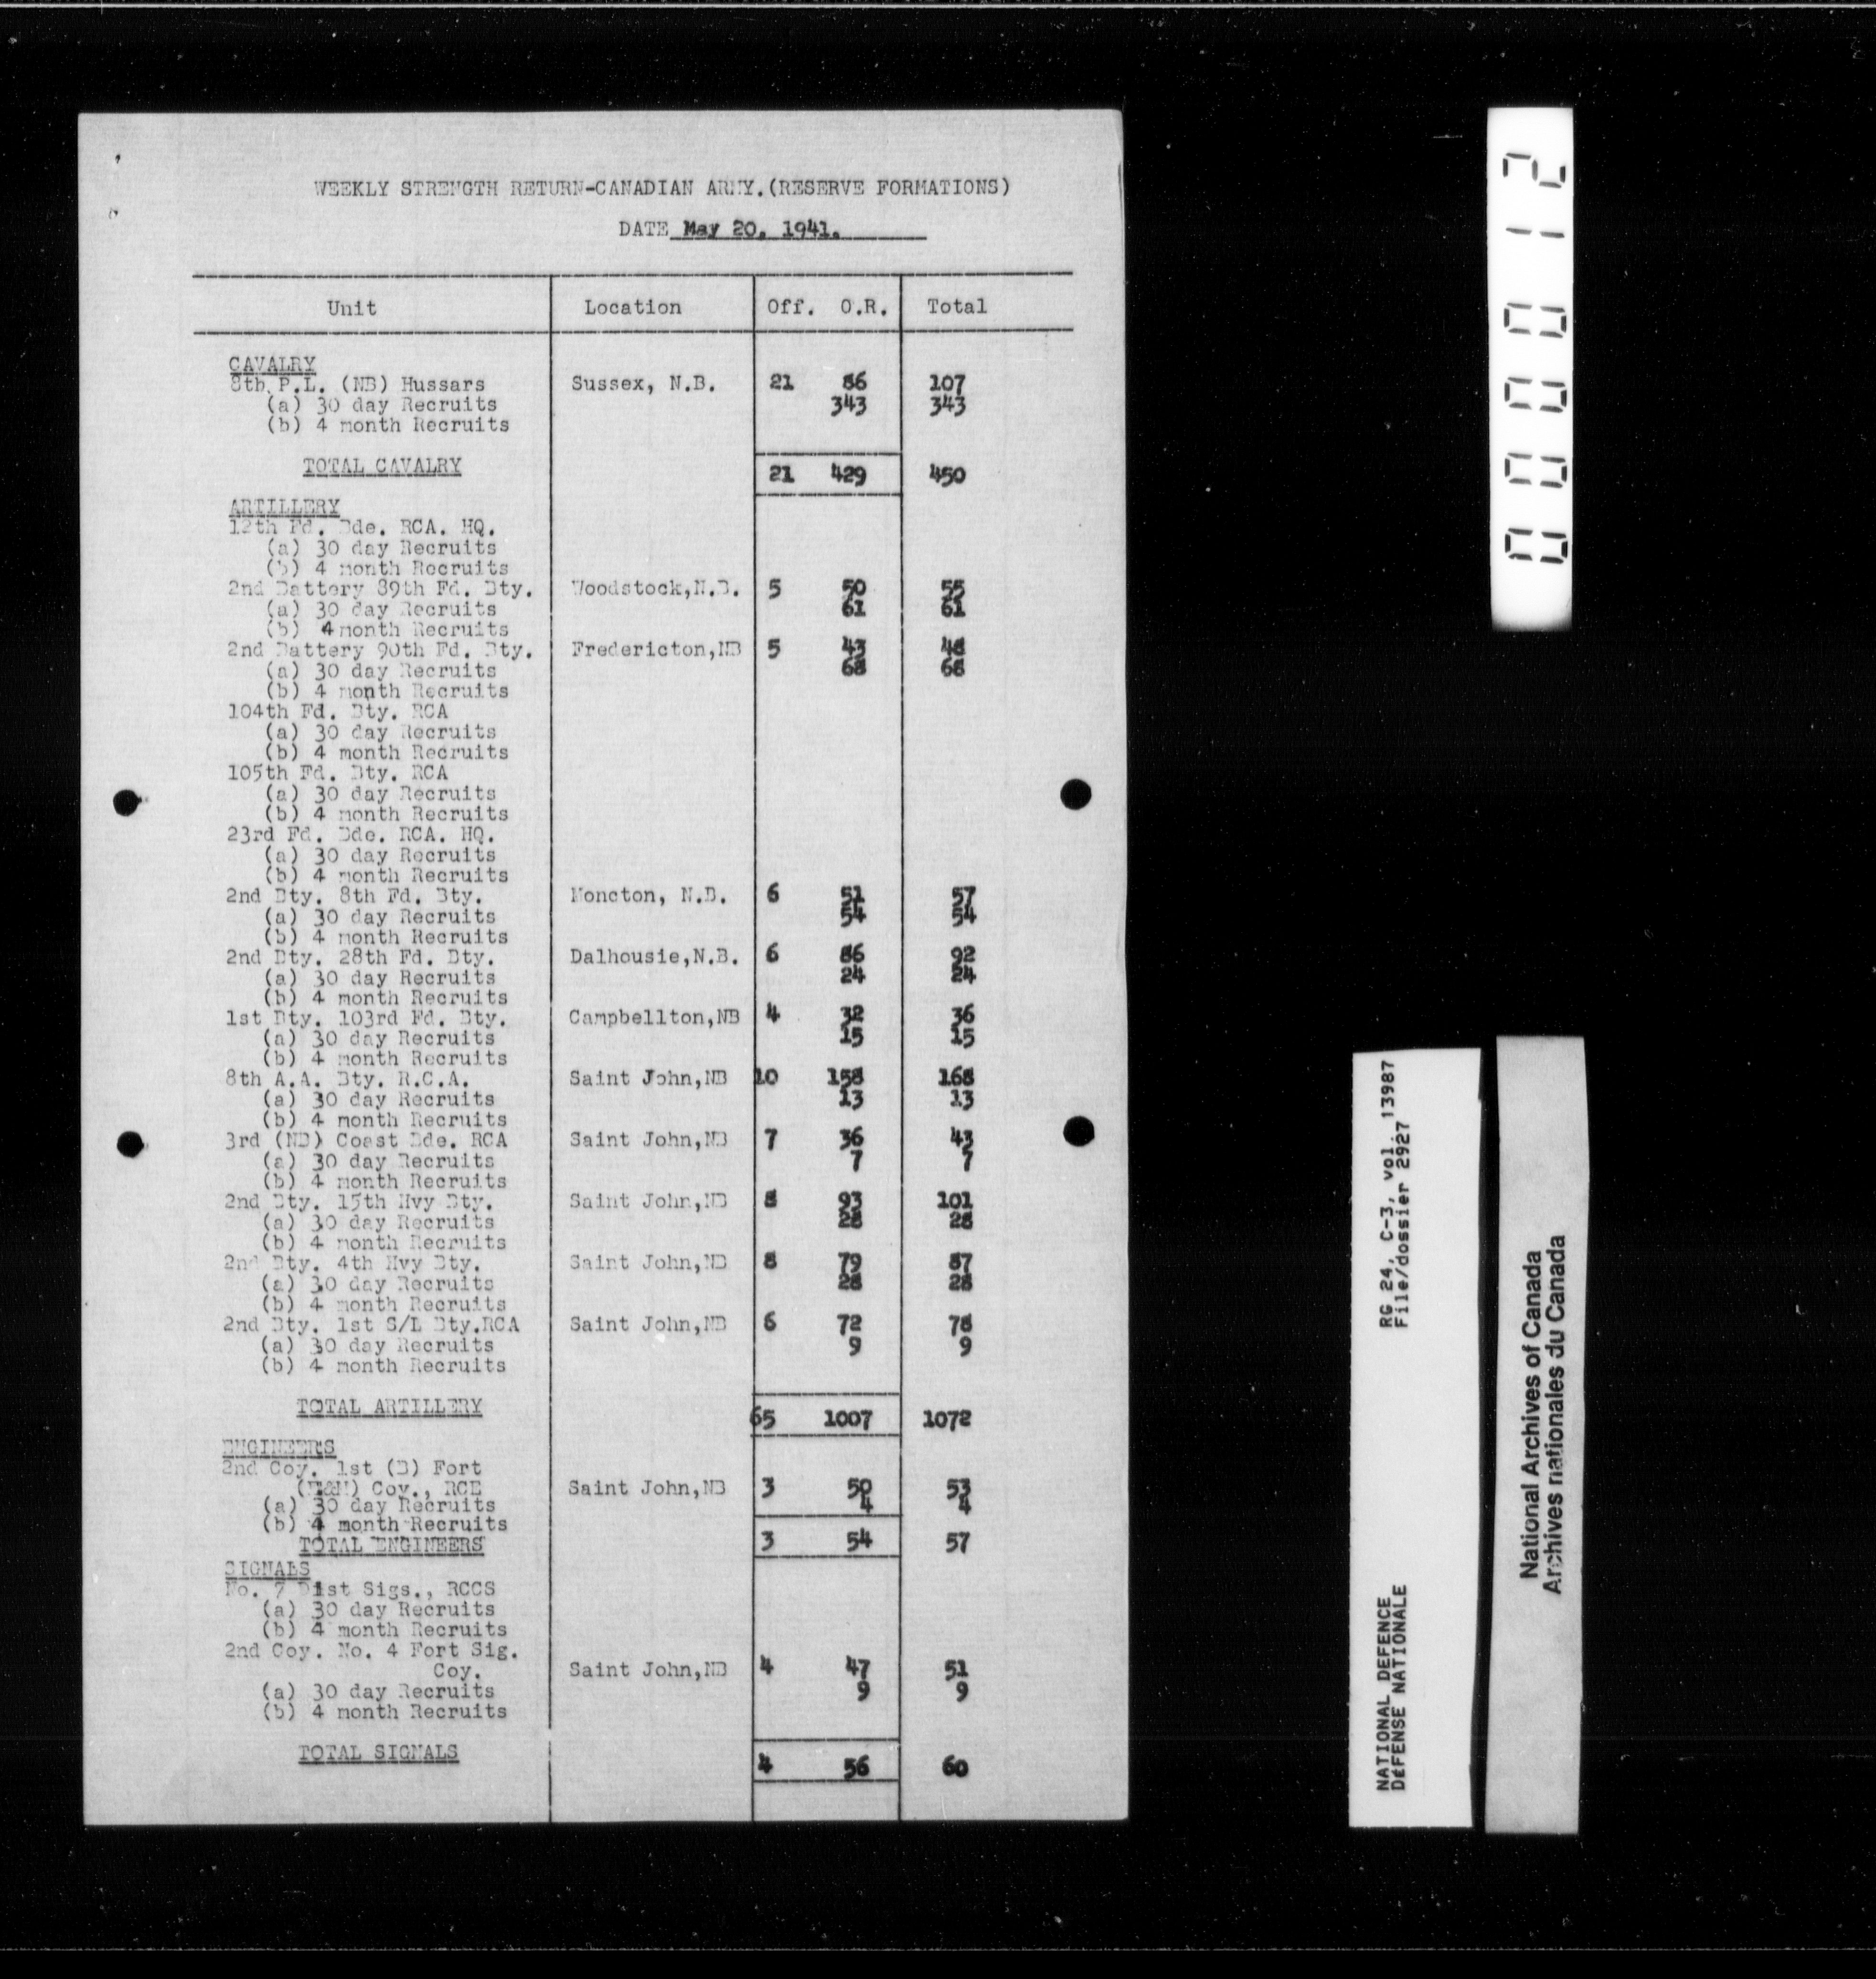 WEEKLY STRENGTH RETURN-CANADIAN ARMY.(RESERVE FORMATIONS)
DATE May 20, 1941.
Unit Location Off. O.R. Total
CAVALRY
8th P.L. (NB) Hussars Sussex, N.B. 21 86 107
(a) 30 day Recruits 343 343
(b) 4 month Recruits
TOTAL CAVALRY 21 429 450
ARTILLERY
12th Fd. Bde. RCA. HQ.
(a) 30 day Recruits
(b) 4 month Recruits
2nd Battery 89th Fd. Bty. Woodstock,N.B. 5 50 55
(a) 30 day Recruits 61 61
(b) 4 month Recruits
2nd Battery 90th Fd. Bty. Fredericton,NB 5 43 48
(a) 30 day Recruits 68 68
(b) 4 month Recruits
104th Fd. Bty. RCA
(a) 30 day Recruits
(b) 4 month Recruits
105th Fd. Bty. RCA
(a) 30 day Recruits
(b) 4 month Recruits
23rd Fd. Bde. RCA. HQ.
(a) 30 day Recruits
(b) 4 month Recruits
2nd Bty. 8th Fd. Bty. Moncton, N.B. 6 51 57
(a) 30 day Recruits 54 54
(b) 4 month Recruits
2nd Bty. 28th Fd. Bty. Dalhousie,N.B. 6 86 92
(a) 30 day Recruits 24 24
(b) 4 month Recruits
1st Bty. 103rd Fd. Bty. Campbellton,NB 4 32 36
(a) 30 day Recruits 15 15
(b) 4 month Recruits
8th A.A. Bty. R.C.A. Saint John,NB 10 158 168
(a) 30 day Recruits 13 13
(b) 4 month Recruits
3rd (NB) Coast Bde. RCA Saint John,NB 7 36 43
(a) 30 day Recruits 7 7
(b) 4 month Recruits
2nd Bty. 15th Hvy Bty. Saint John,NB 8 93 101
(a) 30 day Recruits 28 28
(b) 4 month Recruits
2nd Bty. 4th Hvy Bty. Saint John,NB 8 79 87
(a) 30 day Recruits 28 28
(b) 4 month Recruits
2nd Bty. 1st S/L Bty.RCA Saint John,NB 6 72 78
(a) 30 day Recruits 9 9
(b) 4 month Recruits
TOTAL ARTILLERY 65 1007 1072
ENGINEERS
2nd Coy. 1st (B) Fort
(E&M) Coy., RCE Saint John,NB 3 50 53
(a) 30 day Recruits 4 4
(b) 4 month Recruits
TOTAL ENGINEERS 3 54 57
SIGNALS
No. 7 Dist Sigs., RCCS
(a) 30 day Recruits
(b) 4 month Recruits
2nd Coy. No. 4 Fort Sig.
Coy. Saint John,NB 4 47 51
(a) 30 day Recruits 9 9
(b) 4 month Recruits
TOTAL SIGNALS 4 56 60
000012
NATIONAL DEFENCE RG 24, C-3, vol. 13987
DÉFENSE NATIONALE File/dossier 2927
National Archives of Canada
Archives nationales du Canada